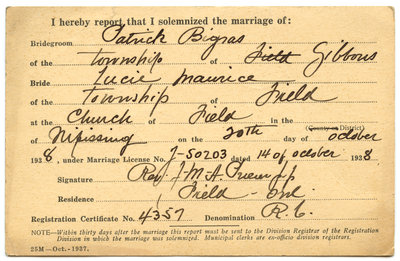 I hereby report that I solemnized the marriage of:
Bridegroom Patrick Bigras
of the township of Field Gibbons
Bride Lucie Maurice
of the Township of Field
at the Church of Field in the (County or District)
of Nipissing on the 20th day of october
1938, under Marriage License No. J-50203 dated 14 of october 1938
Signature Rev J M A
Residence Field - Ont
Registration Certificate No. 4357 Denomination R.C.
NOTE—Within thirty days after the marriage this report must be sent to the Division Registrar of the Registration
Division in which the marriage was solemnized. Municipal clerks are ex-officio division registrars.
25M—Oct.-1937.